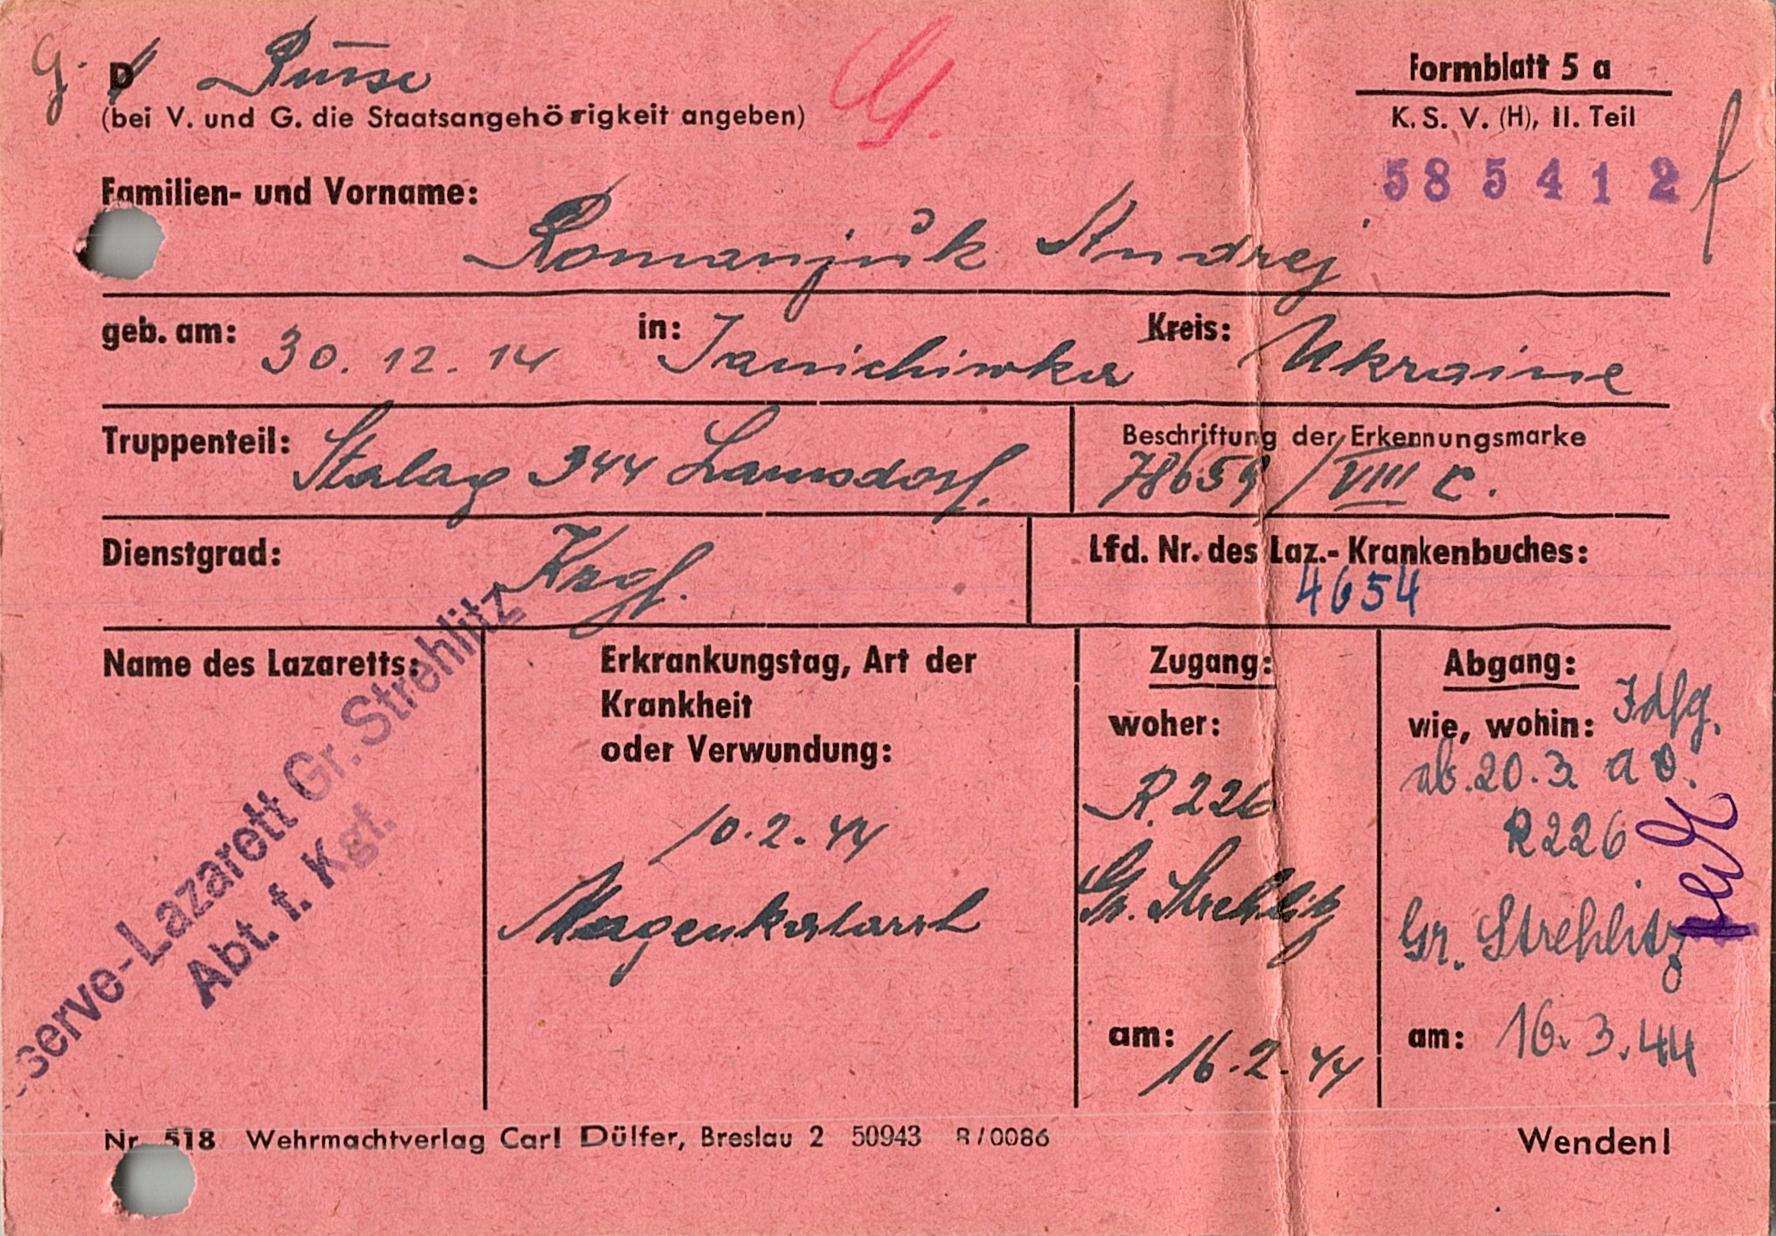 g. D Russe G.
(bei V. und G. die Staatsangehörigkeit angeben)
Formblatt 5 a
K. S. V. (H), II. Teil
585412
f
Familien- und Vorname:
Romanjuk Andrej
geb. am: 30. 12. 14 in: Janichiwka Kreis: Ukraine
Truppenteil: Stalag 344 Lamsdorf.
Beschriftung der Erkennungsmarke
78659/VIII C.
Dienstgrad: Krgf.
Lfd. Nr. des Laz.- Krankenbuches:
4654
Name des Lazaretts:
serve-Lazarett Gr. Strehlitz
Abt. f. Kgf.
Erkrankungstag, Art der
Krankheit
oder Verwundung:
10. 2. 44
Magenkatarrh
Zugang:
woher:
R. 226
Gr. Strehlitz
am: 16. 2. 44
Abgang:
wie, wohin: Idfg.
ab. 20. 3. a o.
R 226
Gr. Strehlitz
am: 16. 3. 44
Nr. 518 Wehrmachtverlag Carl Dülfer, Breslau 2 50943 R/0086
Wenden!